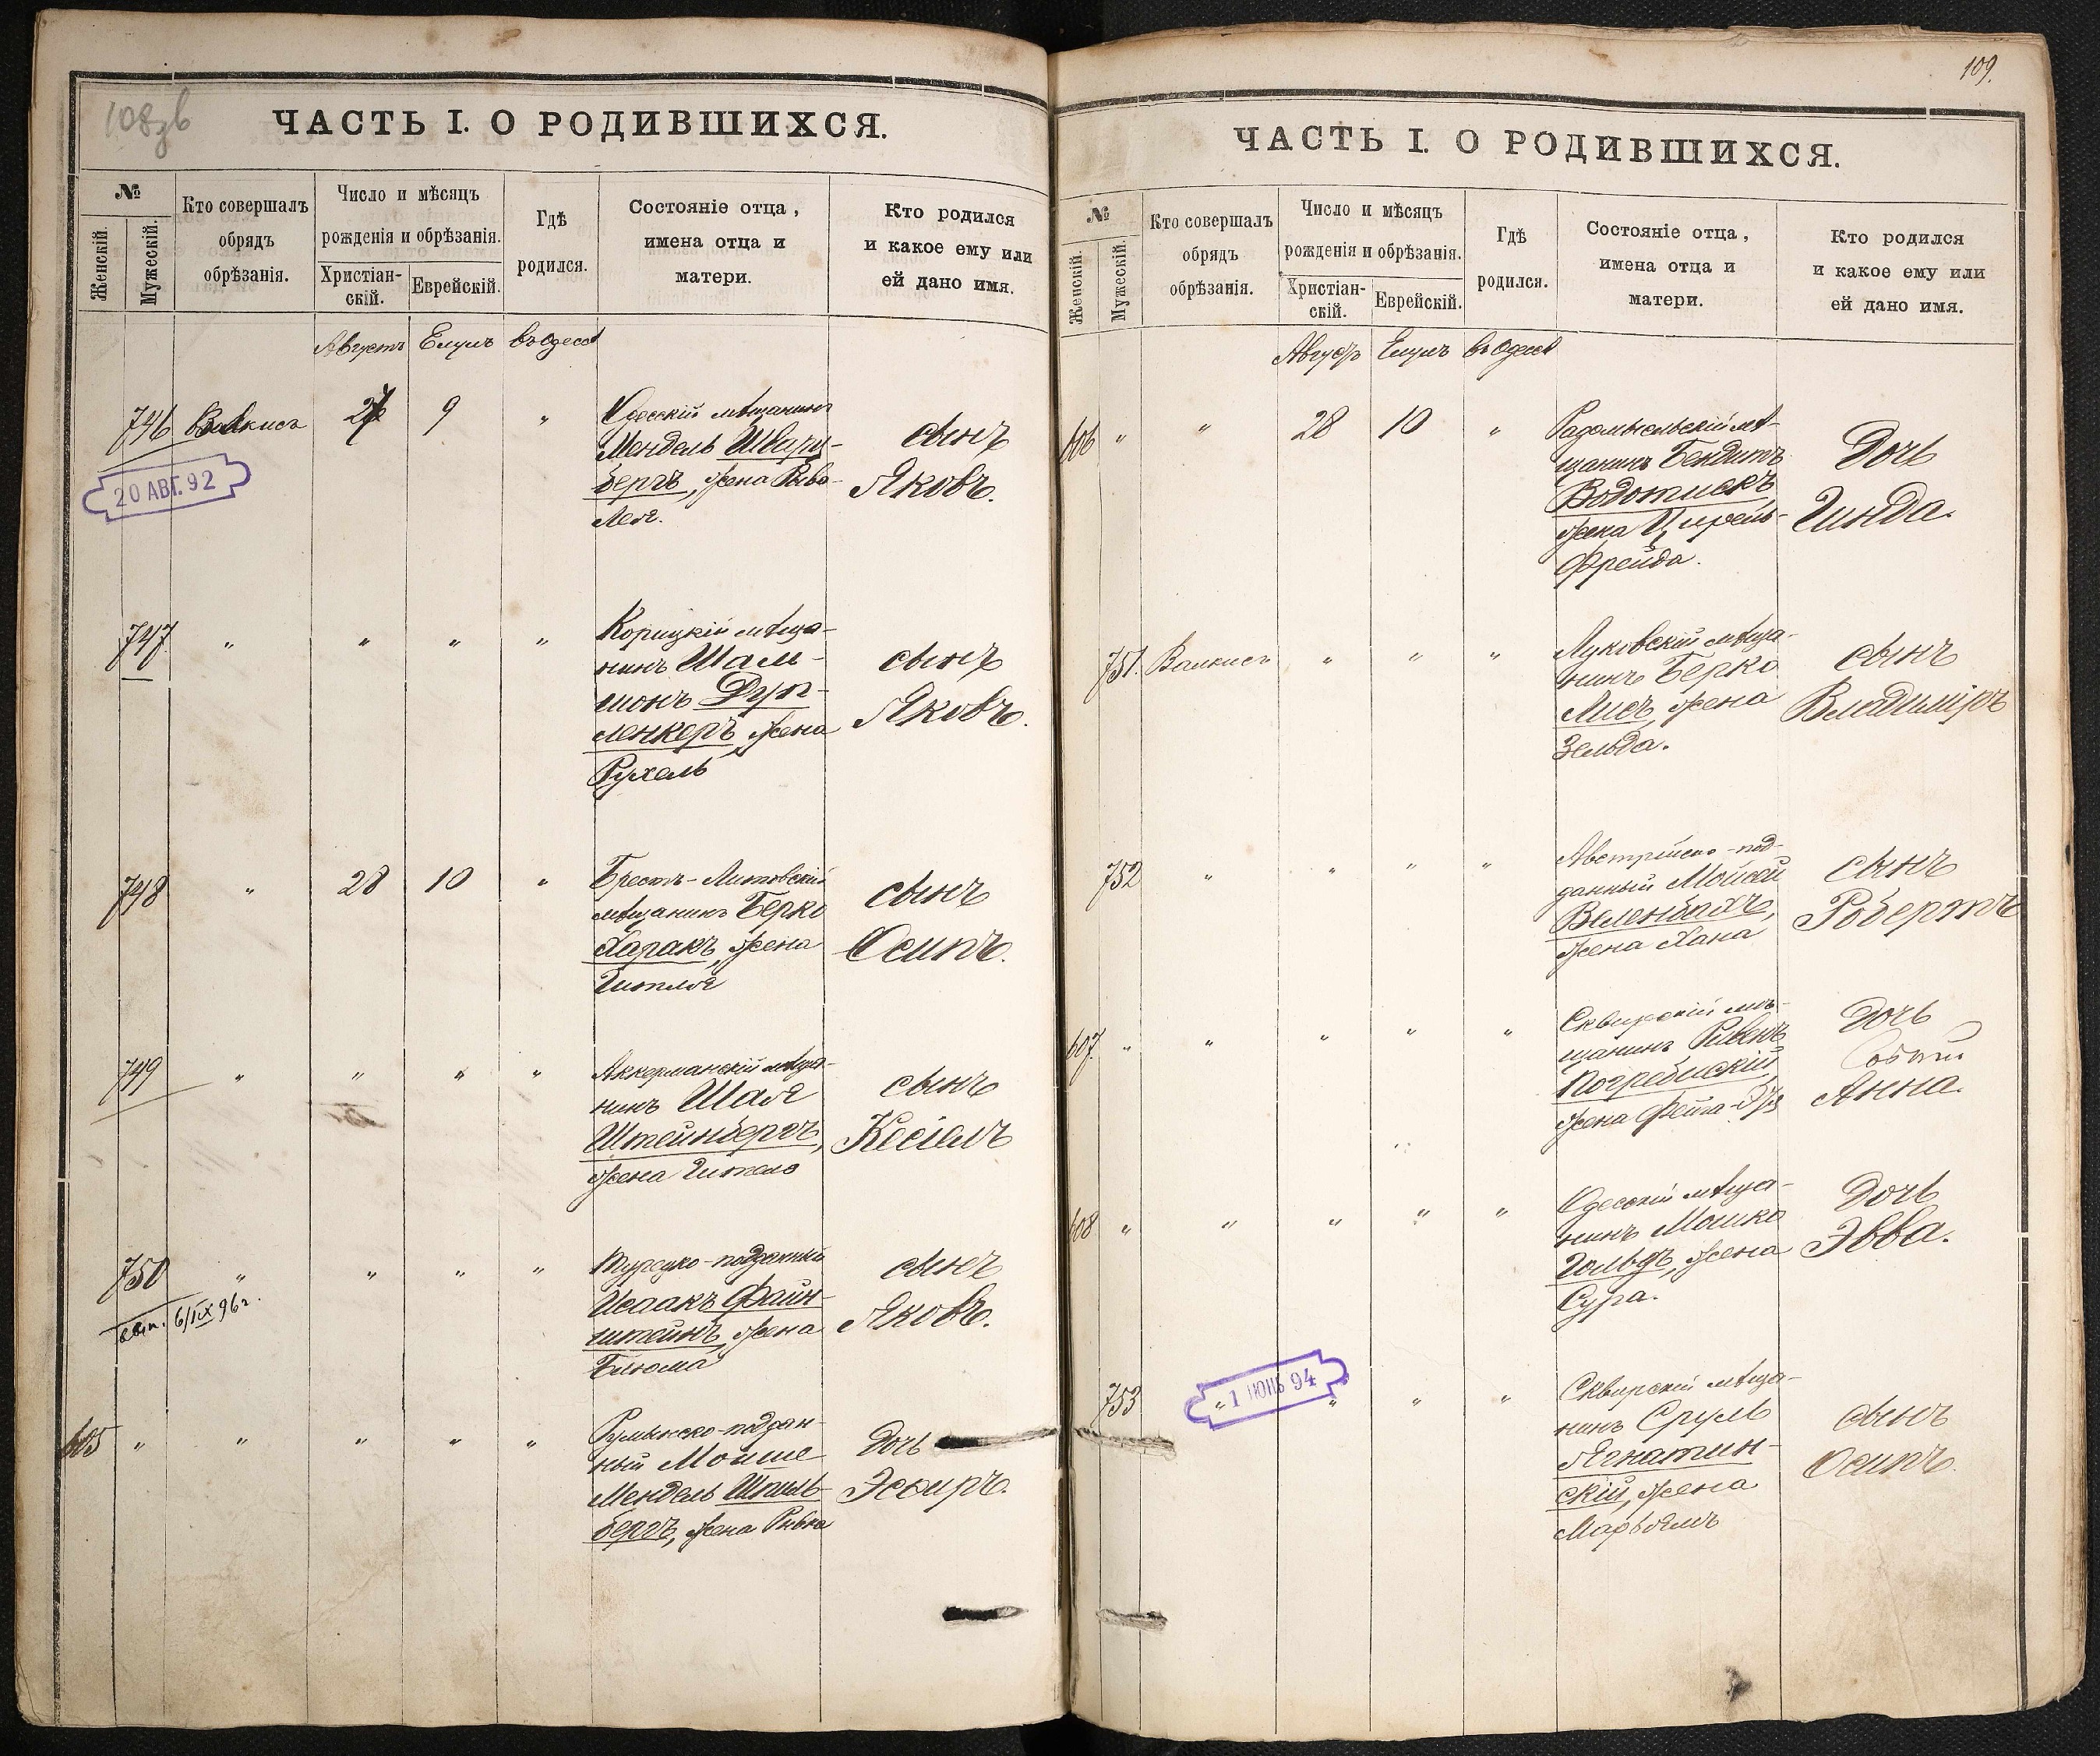 108зв
ЧАСТЬ I. О РОДИВШИХСЯ.
№
Женскій.
Мужескій.
Кто совершалъ
обрядъ
обрѣзанія.
Число и мѣсяцъ
рожденія и обрѣзанія.
Христіан-
скій.
Еврейскій.
Гдѣ
родился.
Состояніе отца,
имена отца и
матери.
Кто родился
и какое ему или
ей дано имя.
Августъ Елулъ въ Одессѣ
746 Валкисъ 27 9 "
20 АВГ. 92
Одесскій мѣщанинъ
Мендель Шварц-
бергъ, жена Рива-
Лея.
сынъ
Яковъ.
747 " " " "
Корицкій мѣща-
нинъ Шам-
шонъ Дуп-
ленкеръ, жена
Рухель
сынъ
Яковъ.
748 " 28 10 "
Брестъ-Литовскій
мѣщанинъ Берко
Харакъ, жена
Гитля
сынъ
Осипъ.
749 " " " "
Аккерманскій мѣща-
нинъ Шая
Штейнбергъ,
жена Гитля
сынъ
Кесіелъ
750 " " " "
6/IX 96г.
Турецко-подданный
Исаакъ Файн-
штейнъ, жена
Блюма
сынъ
Яковъ.
605 " " " " "
Румынско-поддан-
ный Мойше
Мендель Шпиль-
бергъ, жена Ривка
дочь
Эсѳирь.
109.
ЧАСТЬ I. О РОДИВШИХСЯ.
№
Женскій.
Мужескій.
Кто совершалъ
обрядъ
обрѣзанія.
Число и мѣсяцъ
рожденія и обрѣзанія.
Христіан-
скій.
Еврейскій.
Гдѣ
родился.
Состояніе отца,
имена отца и
матери.
Кто родился
и какое ему или
ей дано имя.
Августъ Елулъ въ Одессѣ
606 " " 28 10 "
Радомысльскій мѣ-
щанинъ Бендитъ
Водотискъ
жена Цирель-
Фрейда.
дочь
Гинда.
751. Валкисъ " " "
Луковскій мѣща-
нинъ Берко
Лисъ, жена
Зельда.
сынъ
Владиміръ
752 " " " "
Австрійско-под-
данный Мойсей
Веленбахъ,
жена Хана
сынъ
Робертъ
607. " " " " "
Сквирскій мѣ-
щанинъ Рувенъ
Погребискій,
жена Фейга-
дочь
Анна.
608 " " " " "
Одесскій мѣща-
нинъ Мошко
Гольдъ, жена
Сура.
дочь
Эвва.
753 " " " "
1 ИЮНЬ 94
Сквирскій мѣща-
нинъ Сруль
Ягнатин-
скій, жена
Марьямъ
сынъ
Осипъ.